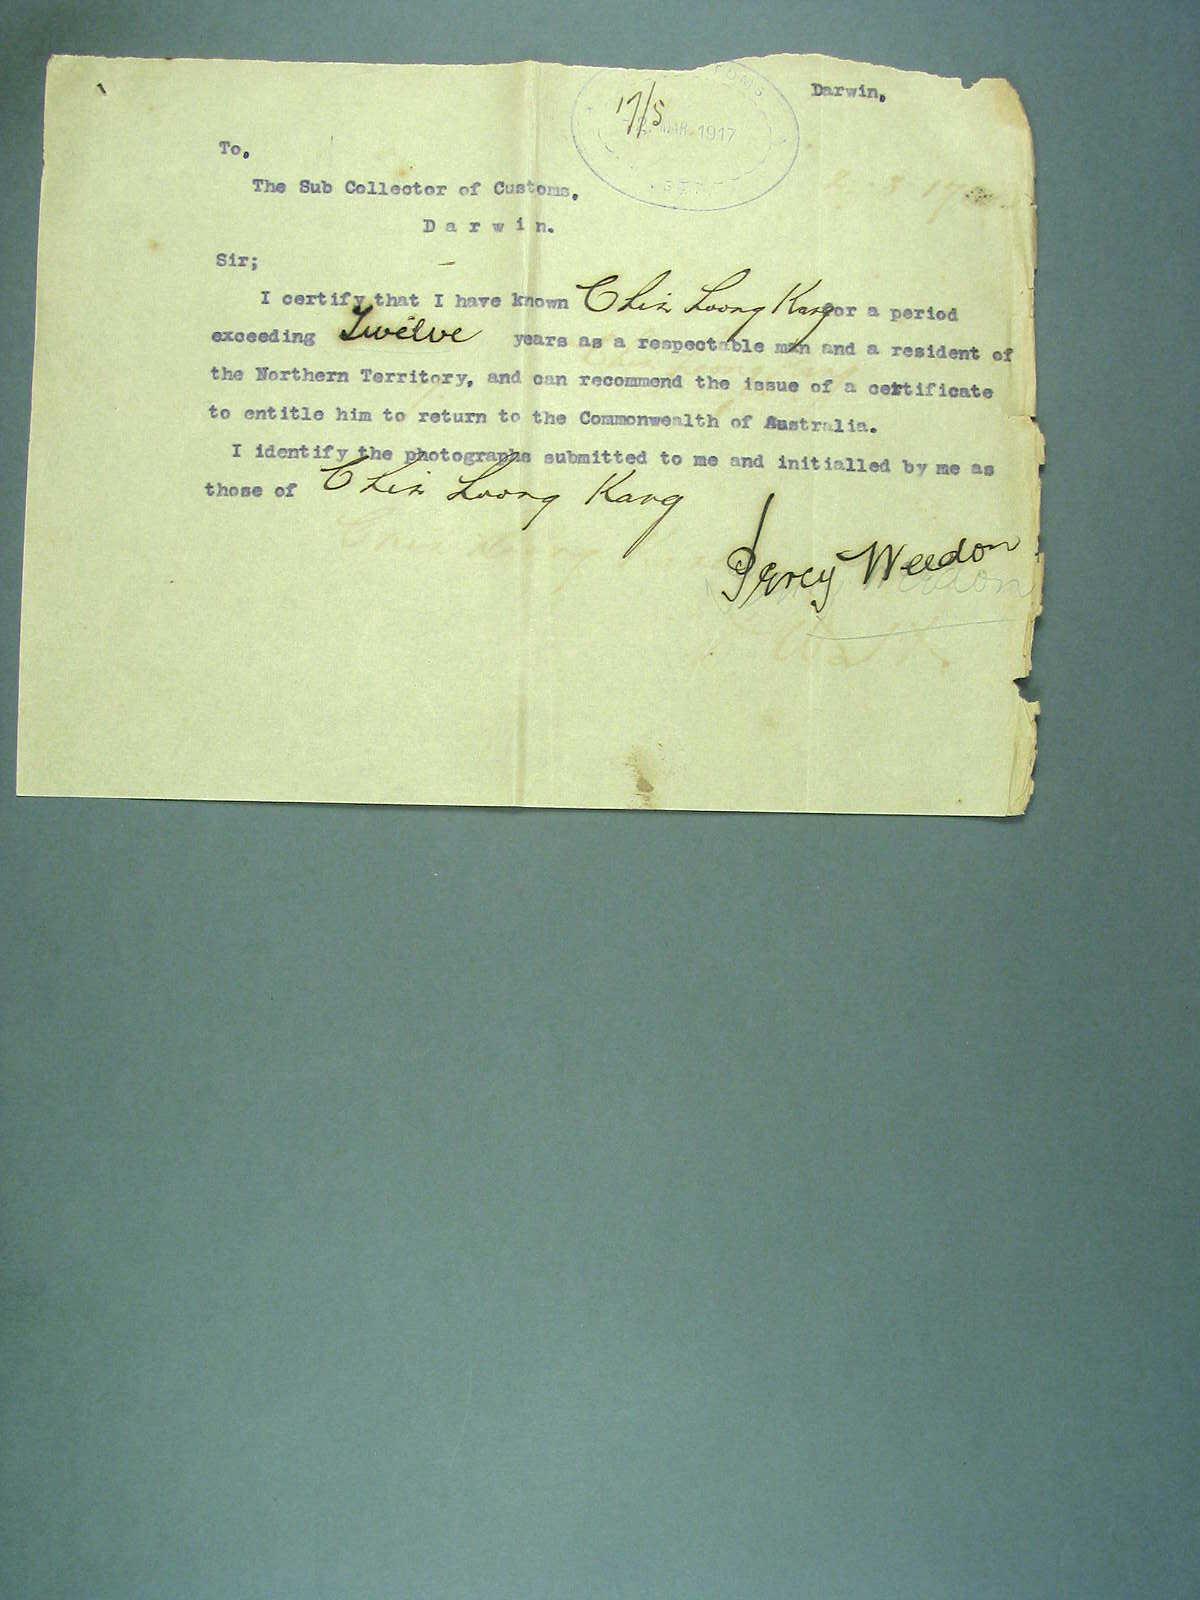 Darwin,
17/5
MAR 1917
To,
The Sub Collector of Customs,
Darwin.
Sir;
I certify that I have known Chin Loong Kang for a period
exceeding Twelve years as a respectable man and a resident of
the Northern Territory, and can recommend the issue of a certificate
to entitle him to return to the Commonwealth of Australia.
I identify the photographs submitted to me and initialled by me as
those of Chin Loong Kang
Percy Weedon